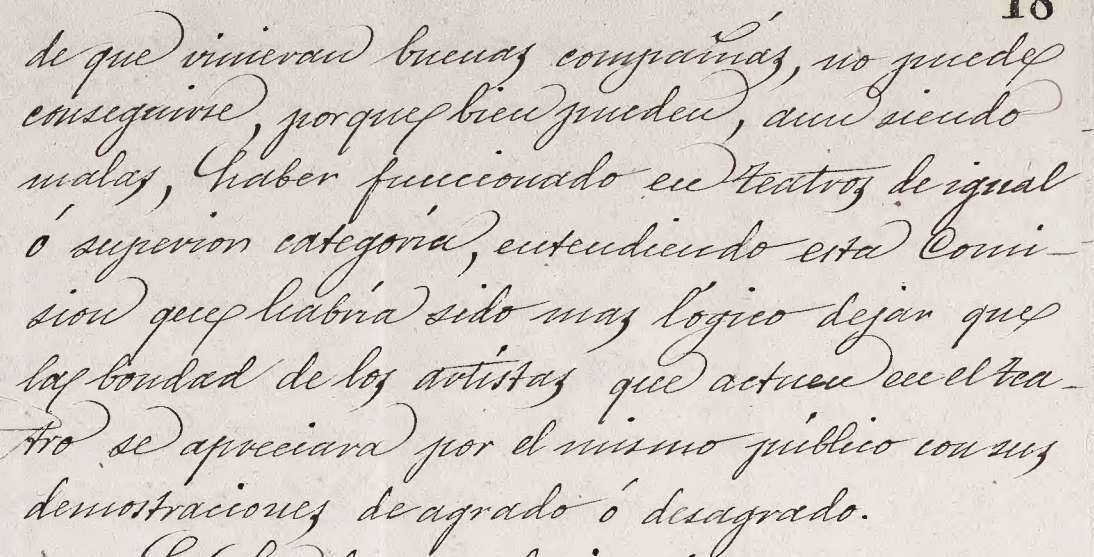 18
de que vinieran buenas compañías, no puede
conseguirse, porque bien pueden, aun siendo
malas, haber funcionado en teatros de igual
ó superior categoría, entendiendo esta Comi-
sion que habría sido mas lógico dejar que
la bondad de los artistas que actuen en el tea-
tro se apreciara por el mismo público con sus
demostraciones de agrado ó desagrado.